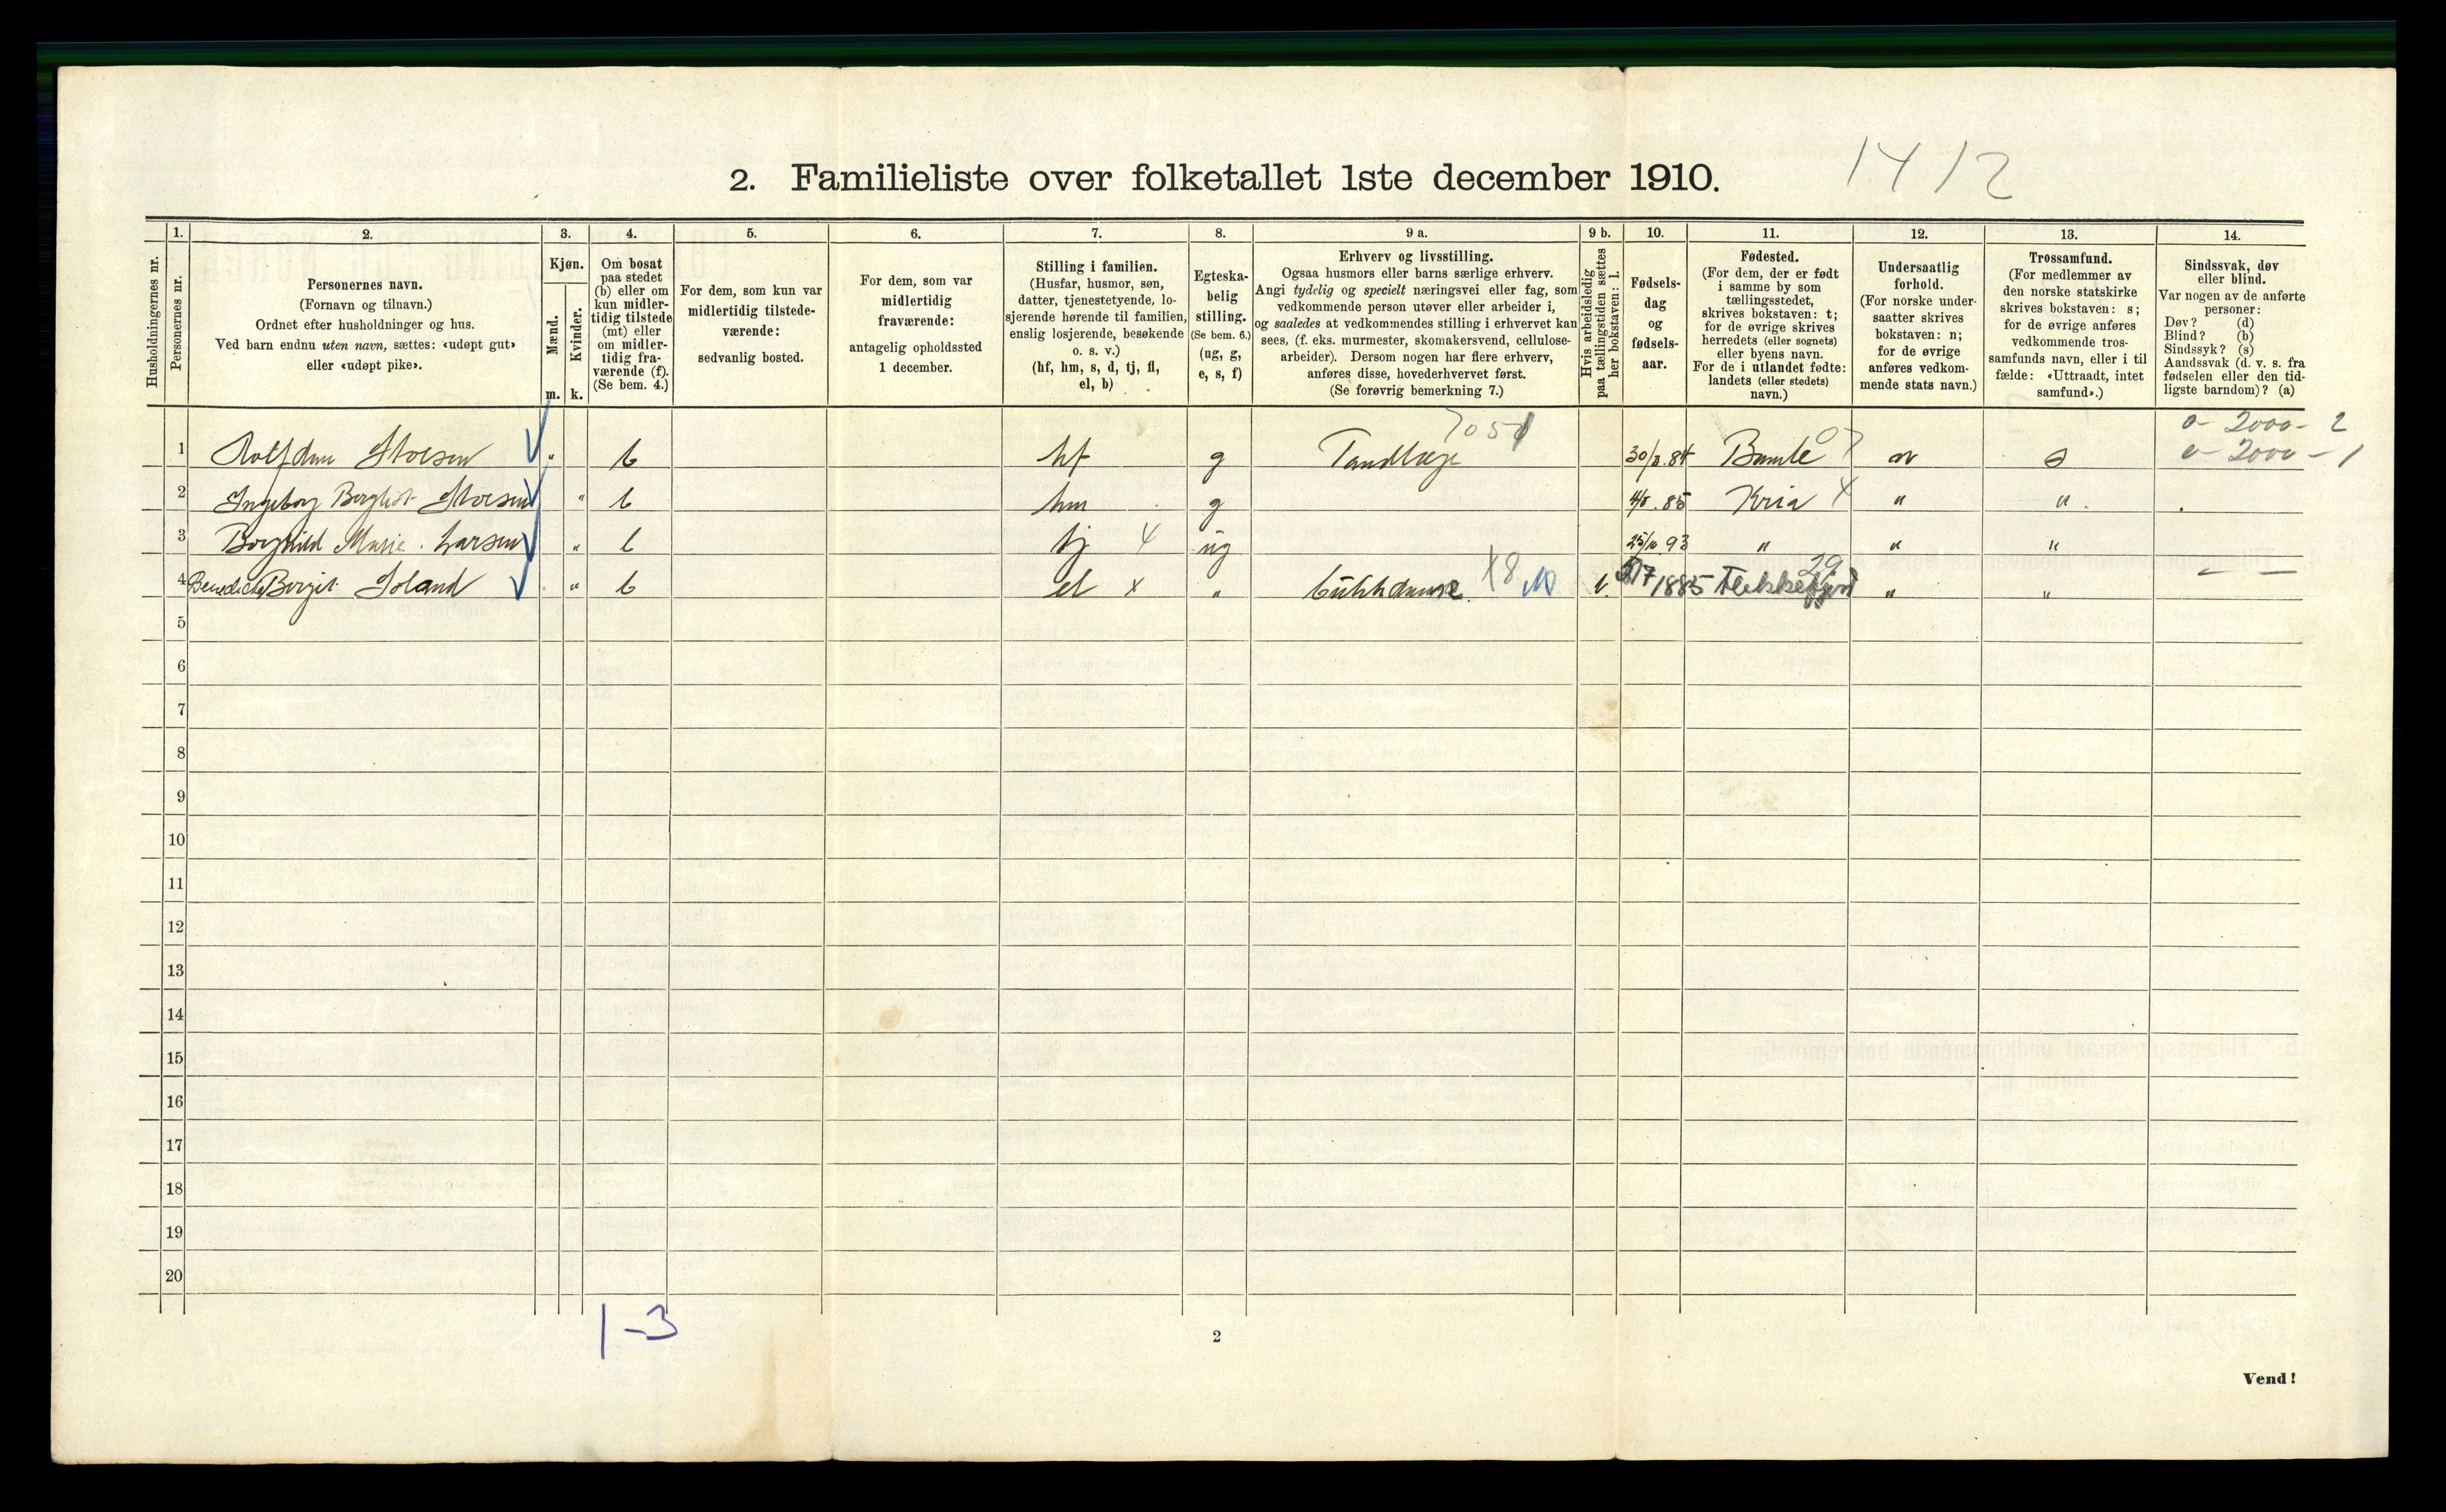 2. Familieliste over folketallet 1ste december 1910.
1412
Husholdningernes nr.
1.
Personernes nr.
2.
Personernes navn.
(Fornavn og tilnavn.)
Ordnet efter husholdninger og hus.
Ved barn endnu uten navn, sættes: «udøpt gut»
eller «udøpt pike».
3.
Kjøn.
Mænd.
Kvinder.
m. k.
4.
Om bosat
paa stedet
(b) eller om
kun midler-
tidig tilstede
(mt) eller
om midler-
tidig fra-
værende (f).
(Se bem. 4.)
5.
For dem, som kun var
midlertidig tilstede-
værende:
sedvanlig bosted.
6.
For dem, som var
midlertidig
fraværende:
antagelig opholdssted
1 december.
7.
Stilling i familien.
(Husfar, husmor, søn,
datter, tjenestetyende, lo-
sjerende hørende til familien,
enslig losjerende, besøkende
o. s. v.)
(hf, hm, s, d, tj, fl,
el, b)
8.
Egteska-
belig
stilling.
(Se bem. 6.)
(ug, g,
e, s, f)
9 a.
Erhverv og livsstilling.
Ogsaa husmors eller barns særlige erhverv.
Angi tydelig og specielt næringsvei eller fag, som
vedkommende person utøver eller arbeider i,
og saaledes at vedkommendes stilling i erhvervet kan
sees, (f. eks. murmester, skomakersvend, cellulose-
arbeider). Dersom nogen har flere erhverv,
anføres disse, hovederhvervet først.
(Se forøvrig bemerkning 7.)
9 b.
Hvis arbeidsledig
paa tællingstiden sættes
her bokstaven: l.
10.
Fødsels-
dag
og
fødsels-
aar.
11.
Fødested.
(For dem, der er født
i samme by som
tællingsstedet,
skrives bokstaven: t;
for de øvrige skrives
herredets (eller sognets)
eller byens navn.
For de i utlandet fødte:
landets (eller stedets)
navn.)
12.
Undersaatlig
forhold.
(For norske under-
saatter skrives
bokstaven: n;
for de øvrige
anføres vedkom-
mende stats navn.)
13.
Trossamfund.
(For medlemmer av
den norske statskirke
skrives bokstaven: s;
for de øvrige anføres
vedkommende tros-
samfunds navn, eller i til
fælde: «Uttraadt, intet
samfund».)
14.
Sindssvak, døv
eller blind.
Var nogen av de anførte
personer:
Døv? (d)
Blind? (b)
Sindssyk? (s)
Aandssvak (d. v. s. fra
fødselen eller den tid-
ligste barndom)? (a)
2000 - 2
1 Rolf Stoesen " b hf g Tandlæge 30/8 84 Bamle n s 2000 - 1
2 Ingeborg Stoesen " b hm g 4/8 85 Kria " "
3 Borghild Marie Larsen " b tj 4 ug 25/10 93 " " "
4 Benedicte Bergit Soland " b el x " x8 1885 Flekkefjord 29 " "
5
6
7
8
9
10
11
12
13
14
15
16
17
18
19
20
1-3
2
Vend!